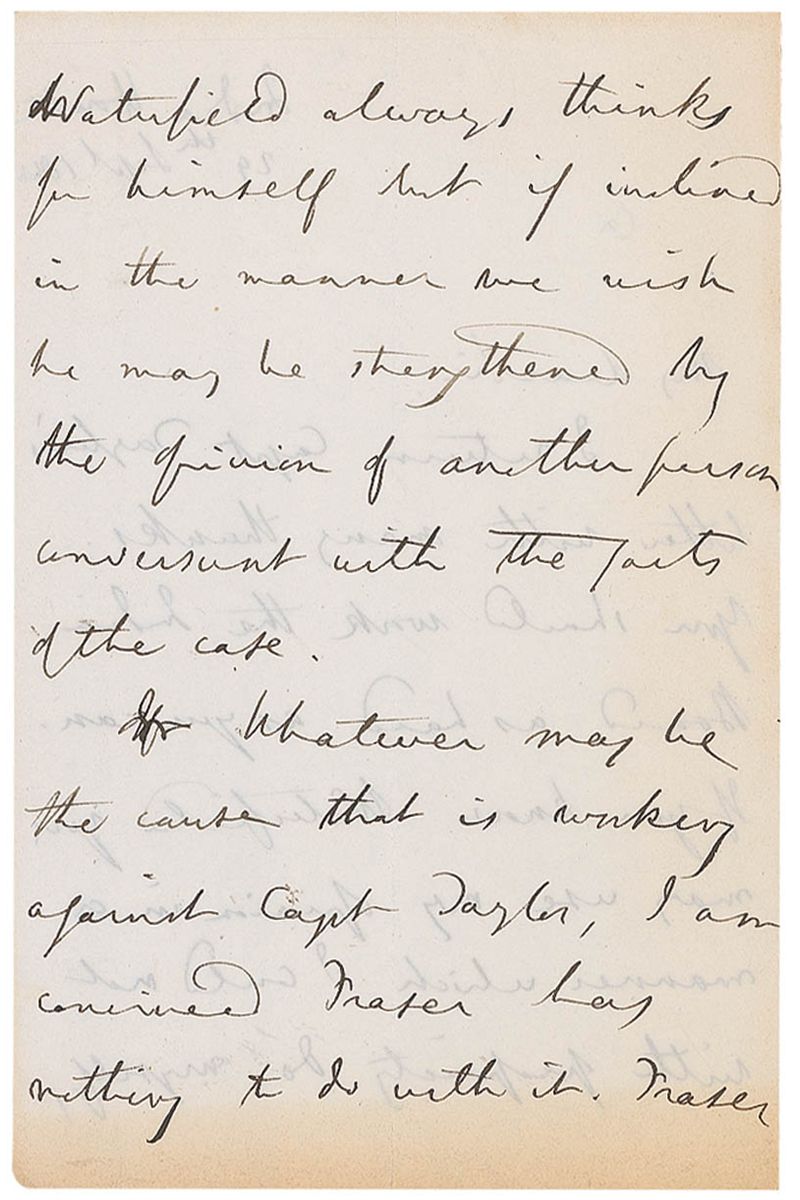 Waterfield always thinks
for himself but if inclined
in the manner we wish
he may be strengthened by
the opinion of another person
conversant with the facts
of the case.
Whatever may be
the cause that is working
against Capt Taylor, I am
convinced Fraser has
nothing to do with it. Fraser